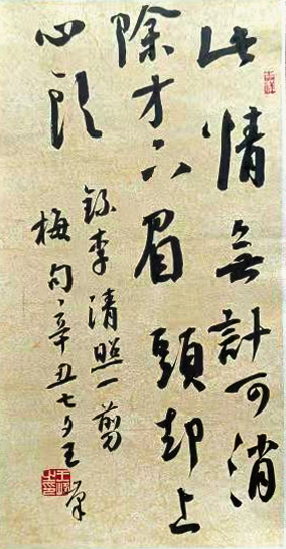 此情無計可消
除才下眉頭却上
心頭
錄李清照一剪
梅句辛丑七夕